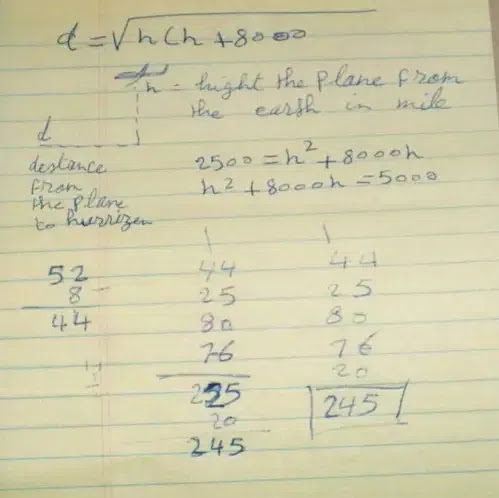 d = √h(h + 8000
h - hight the plane from
the earth in mile
d
destance
from
the plane
to hurrizen
2500 = h² + 8000h
h² + 8000h = 5000
52
8 -
44
1
44
25
80
76
225
20
245
1
44
25
80
76
20
245